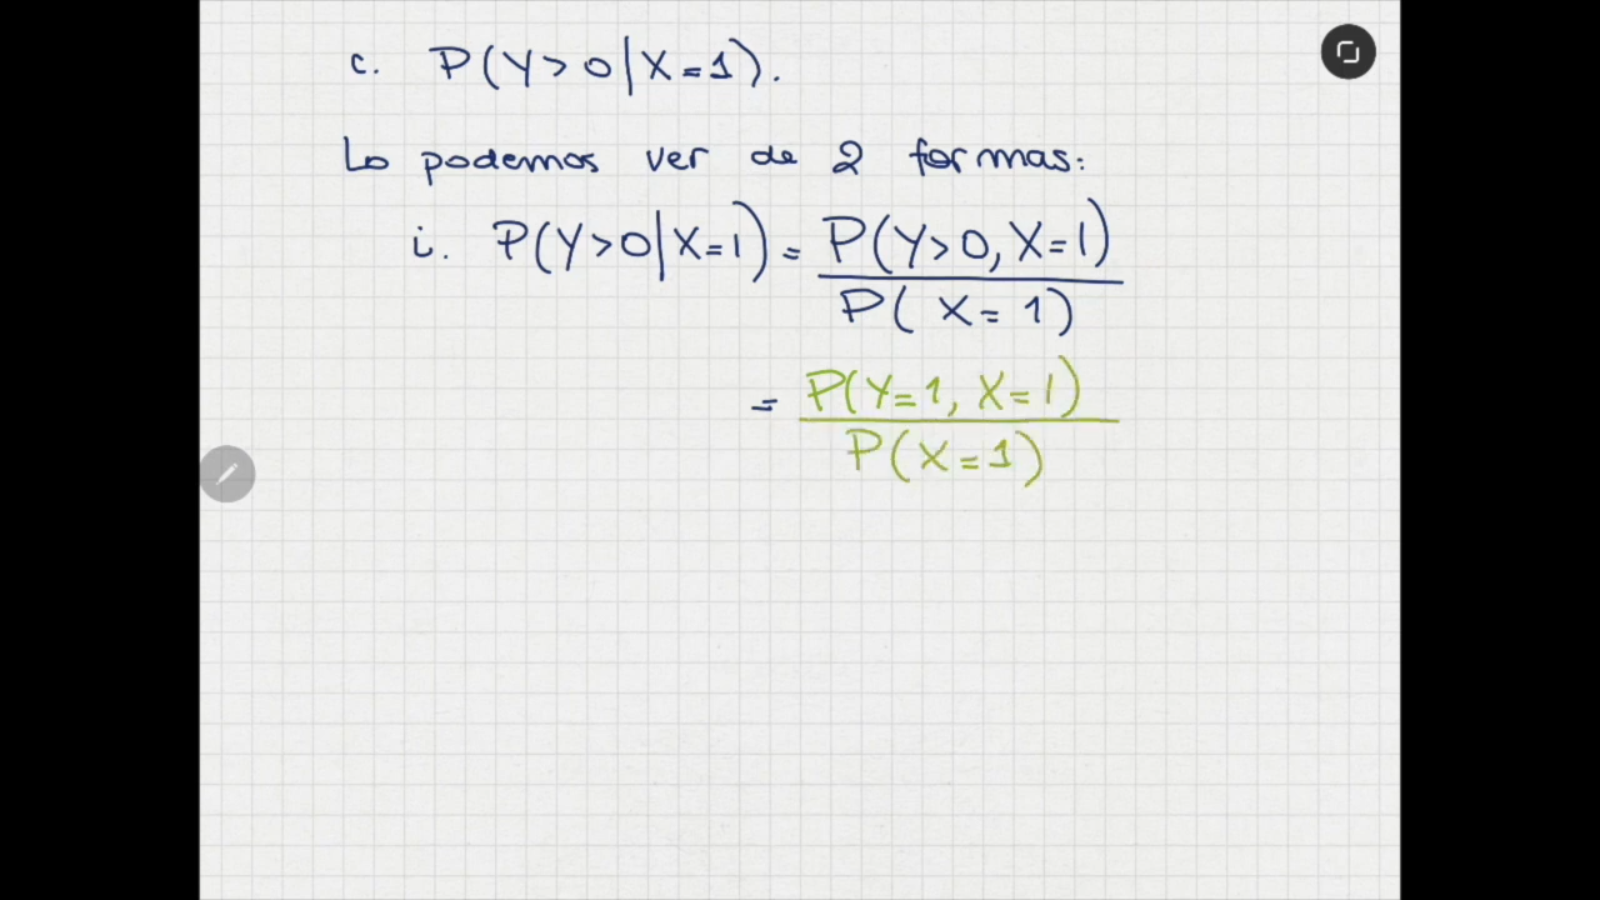 c. P(Y>0|X=1).
Lo podemos ver de 2 formas:
i. P(Y>0|X=1) = P(Y>0, X=1)
P( X= 1)
= P(Y=1, X=1)
P(X=1)